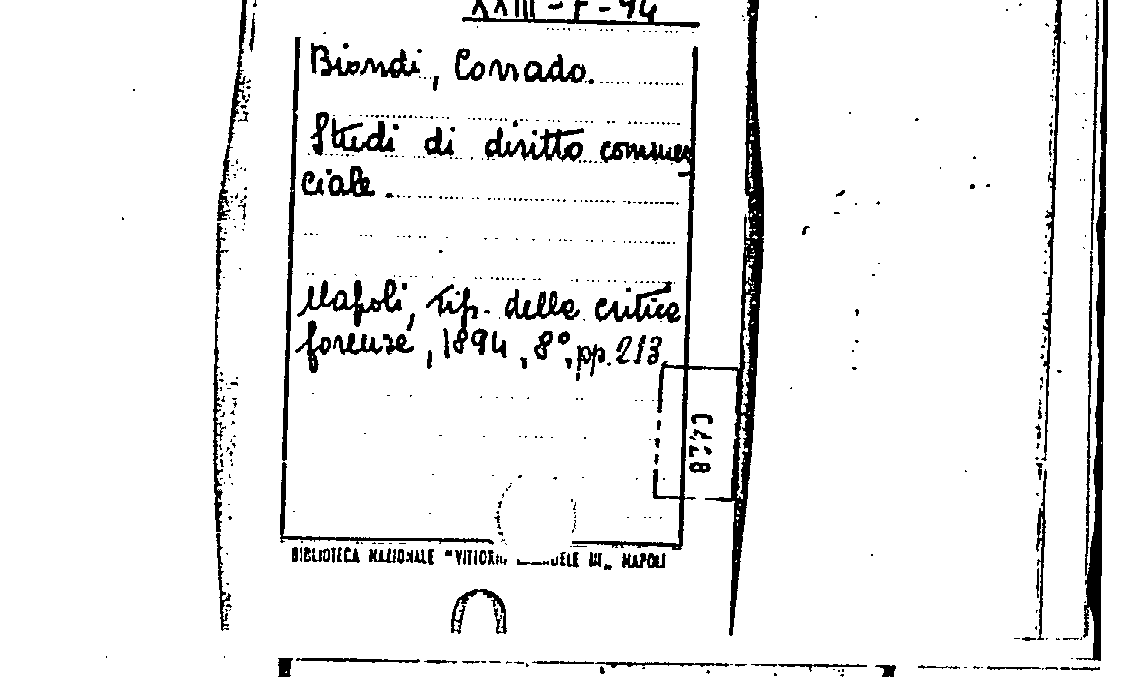 XXIII-F-94
Biondi, Corrado.
Studi di diritto commer
ciale.
Napoli, tip. della critica
forense, 1894, 8°, pp. 213
BIBLIOTECA NAZIONALE "VITTORIO EMANUELE III" NAPOLI